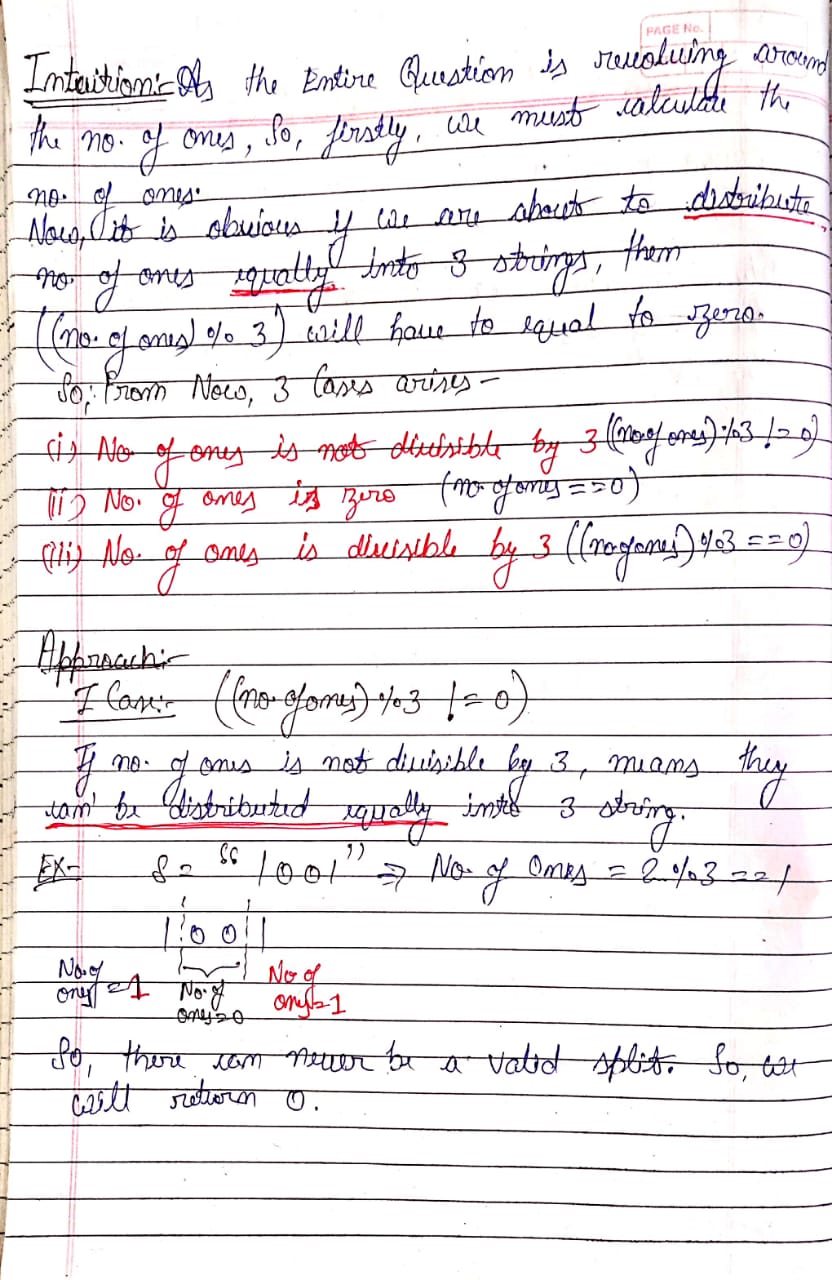 PAGE No.
Intuition:- As the Entire Question is revolving around
the no. of ones, So, firstly, we must calculate the
no. of ones.
Now, it is obvious if we are about to distribute
no. of ones equally into 3 strings, then
((no. of ones) % 3) will have to equal to zero.
So, From Now, 3 Cases arises -
(i) No. of ones is not divisible by 3 ((no of ones) % 3 != 0)
(ii) No. of ones is zero (no of ones == 0)
(iii) No. of ones is divisible by 3 ((no of ones) % 3 == 0)
Approach:-
I Case:- ((no. of ones) % 3 != 0)
If no. of ones is not divisible by 3, means they
can' be distributed equally into 3 string.
EX- S = "1001" => No. of Ones = 2 % 3 == 1
1 | 0 0 | 1
No. of ones = 1 No. of ones = 0 No of ones = 1
So, there can never be a valid split. So, we
will return 0.